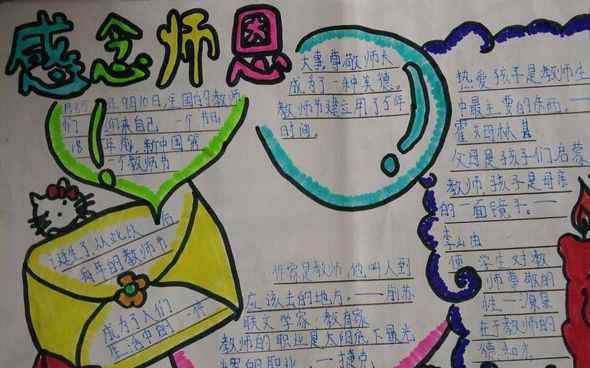 感念师恩
年9月10日,全国的教师
们 们为自己 一个节日
年底,新中国第
一个教师节
大事尊敬师长
成为了一种美德。
教师节建立用了5年
时间。
诞生了,从此以 后
每年的教师节
成为了人们
生活中的一
热爱孩子是教师生
中最主要的东西。——
霍姆林基
父母是孩子们启蒙
教师 孩子是母亲
的一面镜子。——
学生对教
师尊敬的
唯一源泉
在于教师的
德和
师家是教师,他叫人到
应该去的地方。——
联文学家,教育家
教师的职业是太阳底下最光
辉的职业。——捷克